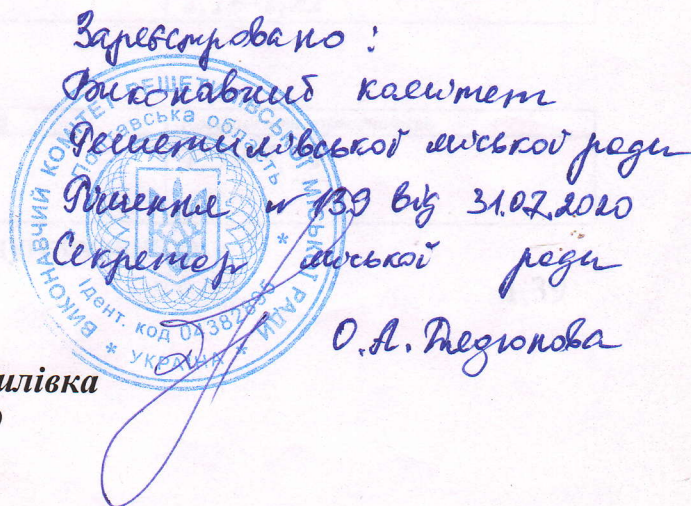 Зареєстровано :
Виконавчий комітет
Решетилівської міської ради
Рішення № 139 від 31.07.2020
Секретар міської ради
О.А. Дядюнова
ВИКОНАВЧИЙ КОМІТЕТ РЕШЕТИЛІВСЬКОЇ МІСЬКОЇ РАДИ
Полтавська область
Ідент. код 04382895
* УКРАЇНА *
илівка